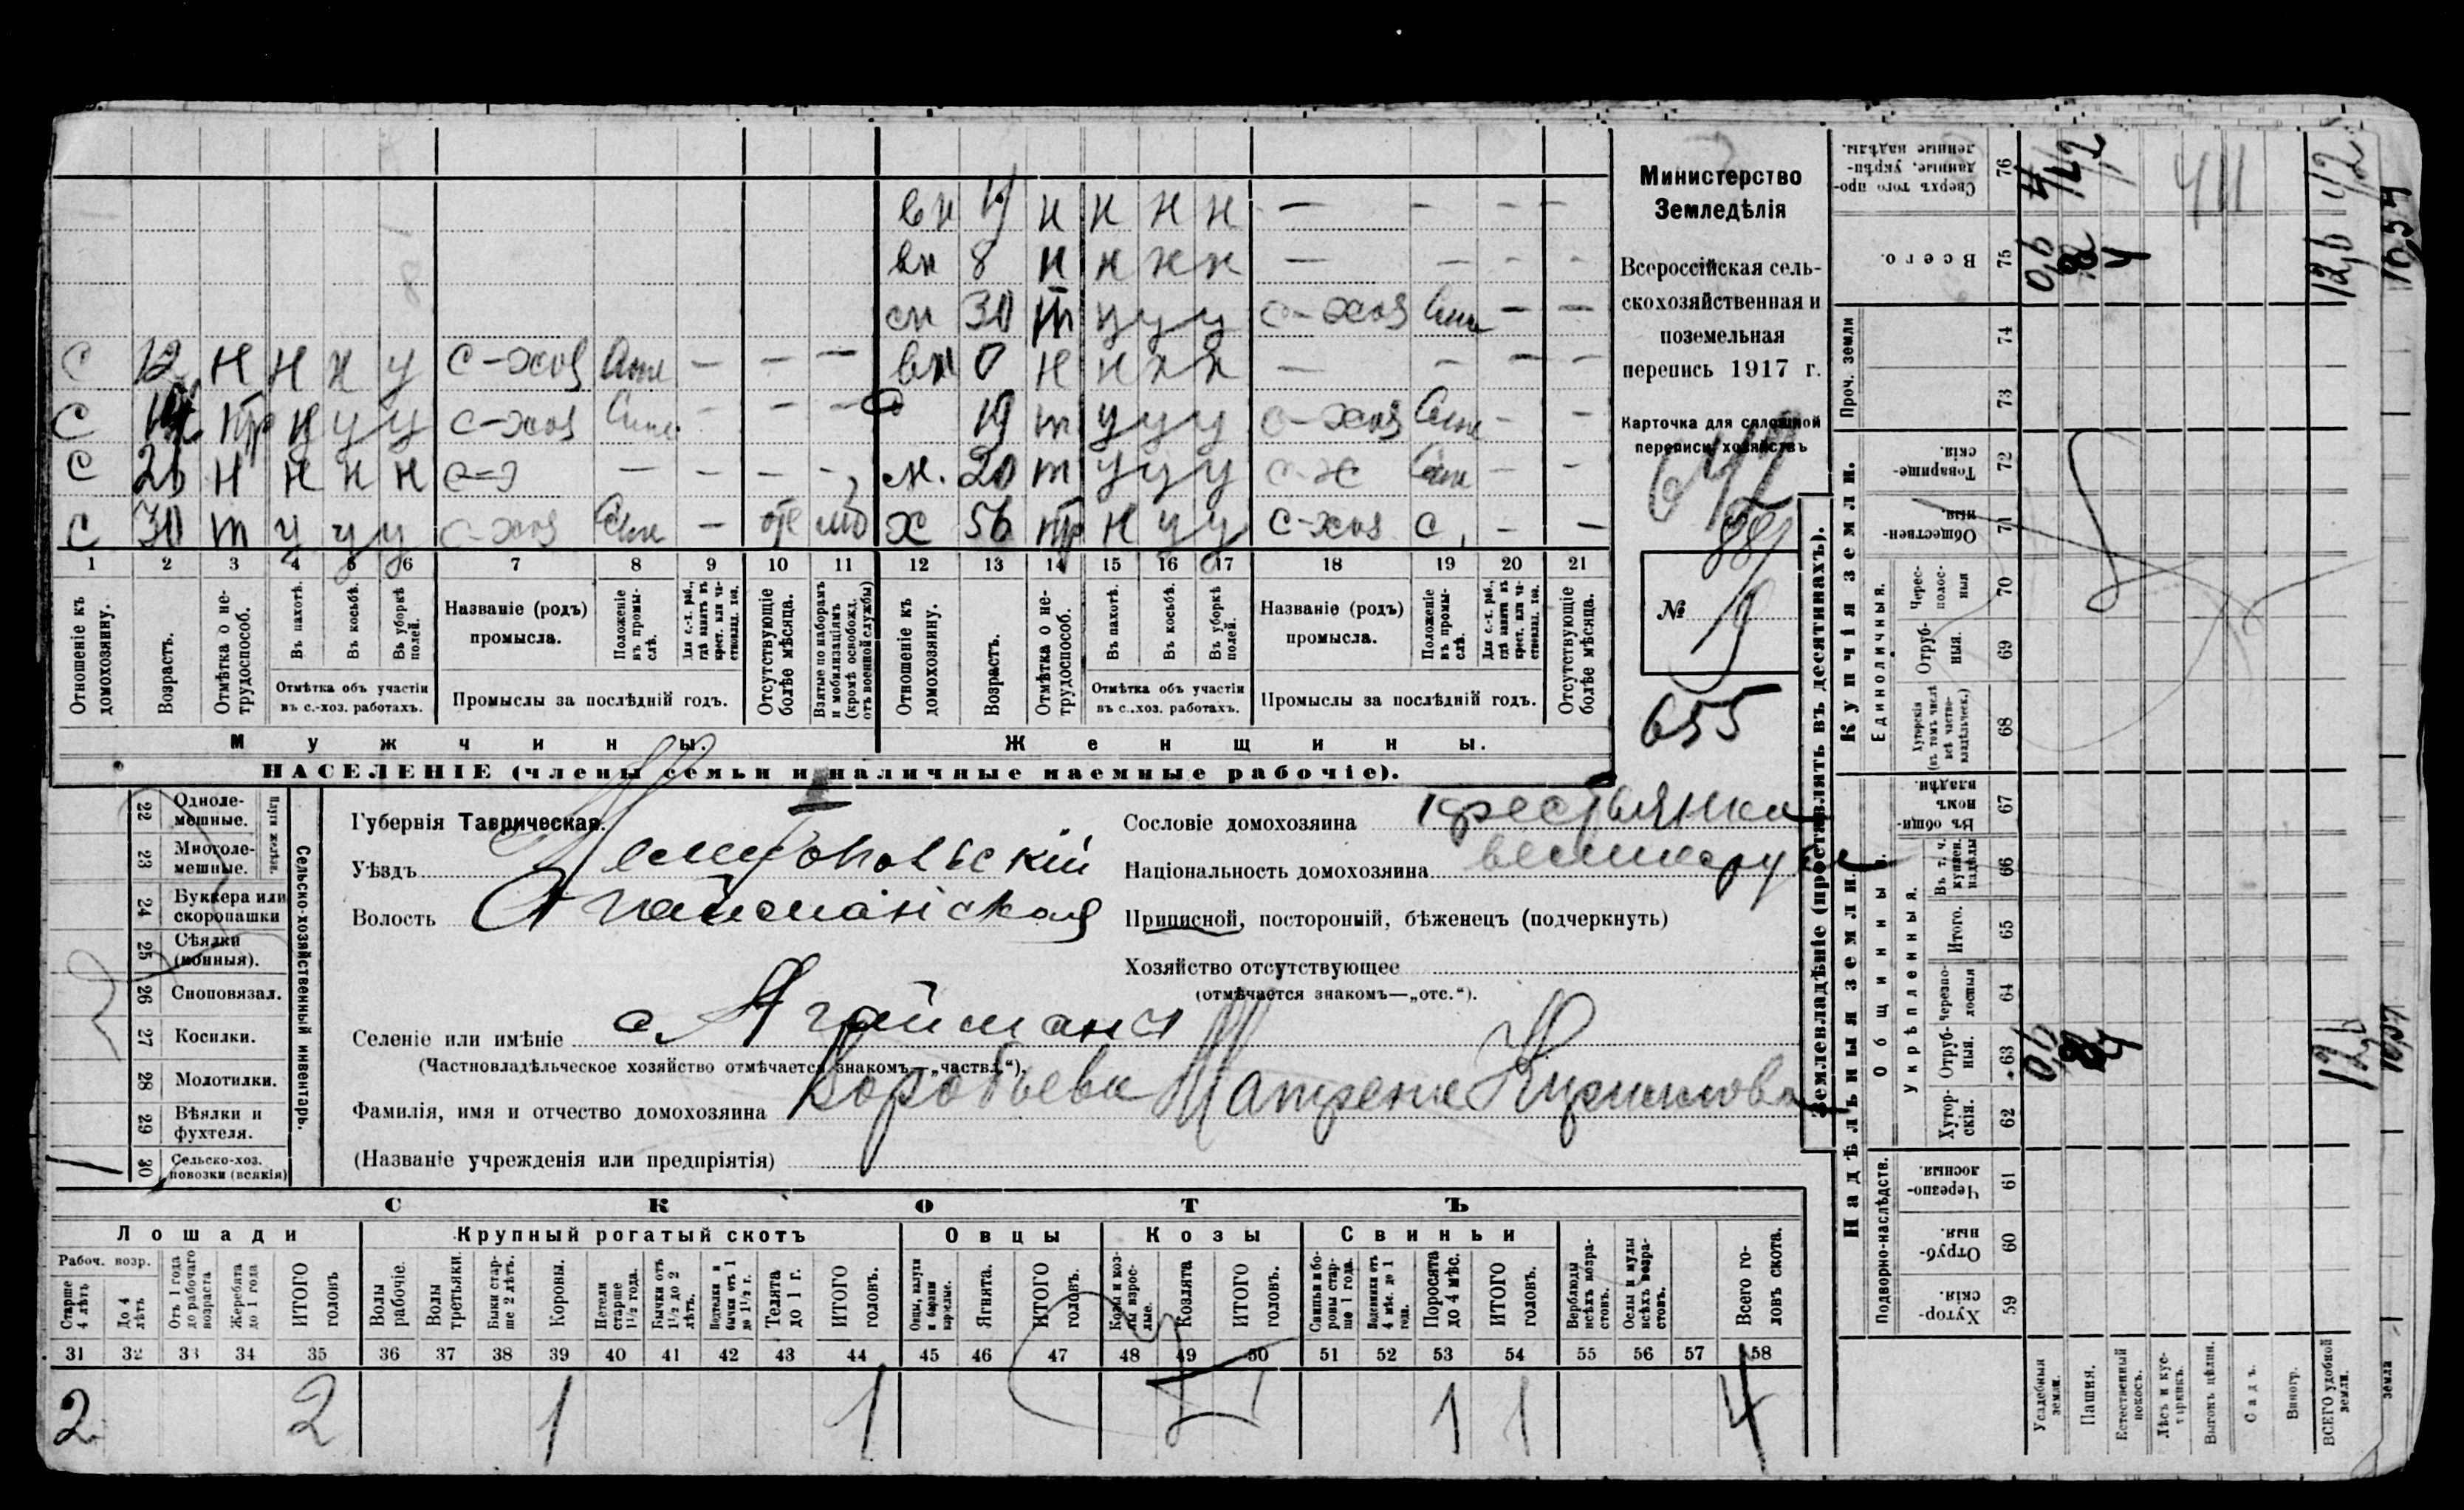 вн н н н н — — — —
вн 8 н н н н — — — —
сн 30 т у у у с-хоз — —
С 12 н н н у с-хоз — — — вн 0 н н н н — — — —
С пр н у у с-хоз — — — 19 т у у у с-хоз — —
С 26 н н н н — — — — 20 т у у у с-х — —
С 30 т у у у с-хоз — х 56 пр н у у с-хоз с — —
1 2 3 4 5 6 7 8 9 10 11 12 13 14 15 16 17 18 19 20 21
Отношеніе къ домохозяину.
Возрастъ.
Отмѣтка о не-трудоспособ.
Въ пахотѣ.
Въ косьбѣ.
Въ уборкѣ полей.
Отмѣтка объ участіи въ с.-хоз. работахъ.
Названіе (родъ) промысла.
Положеніе въ промы-слѣ.
Для с.-х. раб., гдѣ занятъ въ крест. или ча-стновлад. хоз.
Промыслы за послѣдній годъ.
Отсутствующіе болѣе мѣсяца.
Взятые по наборамъ и мобилизаціямъ (кромѣ освобожд. отъ военной службы)
Отношеніе къ домохозяину.
Возрастъ.
Отмѣтка о не-трудоспособ.
Въ пахотѣ.
Въ косьбѣ.
Въ уборкѣ полей.
Отмѣтка объ участіи въ с.-хоз. работахъ.
Названіе (родъ) промысла.
Положеніе въ промы-слѣ.
Для с.-х. раб., гдѣ занятъ въ крест. или ча-стновлад. хоз.
Промыслы за послѣдній годъ.
Отсутствующіе болѣе мѣсяца.
Мужчины. Женщины.
НАСЕЛЕНІЕ (члены семьи и наличные наемные рабочіе).
Министерство
Земледѣлія
Всероссійская сель-
скохозяйственная и
поземельная
перепись 1917 г.
Карточка для сплошной
переписи хозяйствъ
№ 19
655
22 Одноле-мешные.
23 Многоле-мешные.
Плуги желѣзн.
24 Буккера или скоропашки
25 Сѣялки (конныя).
26 Сноповязал.
27 Косилки.
28 Молотилки.
29 Вѣялки и фухтеля.
30 Сельско-хоз. повозки (всякія)
1
Сельско-хозяйственный инвентарь.
Губернія Таврическая.
Уѣздъ Мелитопольскій
Волость Агайманская
Селеніе или имѣніе с. Агайманы
(Частновладѣльческое хозяйство отмѣчается знакомъ—„частвл.“).
Фамилія, имя и отчество домохозяина Воробьева Матрена
(Названіе учрежденія или предпріятія)
Сословіе домохозяина крестьянка
Національность домохозяина великорус
Приписной, посторонній, бѣженецъ (подчеркнуть)
Хозяйство отсутствующее
(отмѣчается знакомъ—„отс.“).
СКОТЪ
Лошади Крупный рогатый скотъ Овцы Козы Свиньи
Рабоч. возр.
Старше 4 лѣтъ
До 4 лѣтъ
Отъ 1 года до рабочаго возраста
Жеребята до 1 года
ИТОГО головъ
Волы рабочіе.
Волы третьяки.
Быки стар-ше 2 лѣтъ.
Коровы.
Нетели старше 1½ года.
Бычки отъ 1½ до 2 лѣтъ.
Подтелки и бычки отъ 1 до 1½ г.
Телята до 1 г.
ИТОГО головъ.
Овцы, валухи и бараны взрослые.
Ягнята.
ИТОГО головъ.
Козы и коз-лы взрос-лые.
Козлята
ИТОГО головъ.
Свиньи и бо-ровы стар-ше 1 года.
Подсвинки отъ 4 мѣс. до 1 года.
Поросята до 4 мѣс.
ИТОГО головъ.
Верблюды всѣхъ возра-стовъ.
Ослы и мулы всѣхъ возра-стовъ.
Всего го-ловъ скота.
31 32 33 34 35 36 37 38 39 40 41 42 43 44 45 46 47 48 49 50 51 52 53 54 55 56 57 58
2 2 1 1 1 1 4
Землевладѣніе (проставлять въ десятинахъ).
Надѣльныя земли.
Купчія земли.
Проч. земли
Подворно-наслѣдств.
Общинныя.
Укрѣпленныя.
Единоличныя.
Сверхъ того про-данные, укрѣп-ленные надѣлы. 76
Всего. 75
74
73
Товарище-скія. 72
Обществен-ныя. 71
Черес-полос-ныя 70
Отруб-ныя. 69
Хуторскія (въ томъ числѣ всѣ частно-владѣльческ.) 68
Въ общин-номъ владѣн. 67
Въ т. ч. куплен. надѣлы 66
Итого. 65
Черезпо-лосныя 64
Отруб-ныя. 63
Хутор-скія. 62
Черезпо-лосныя 61
Отруб-ныя. 60
Хутор-скія. 59
Усадебныя земли.
Пашня.
Естественный покосъ.
Лѣсъ и кус-тарникъ.
Выгонъ цѣлин.
Садъ.
Виногр.
ВСЕГО удобной земли.
земля
0,6
12,6
0,6
12,6